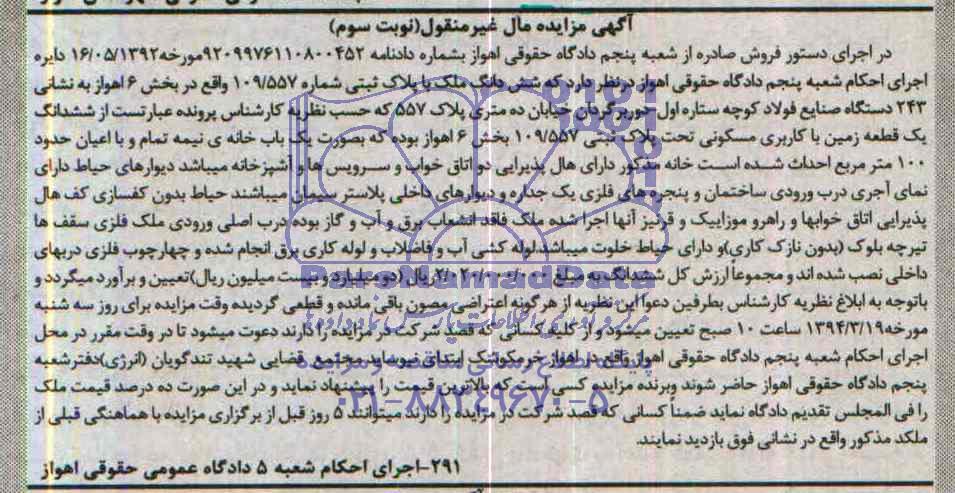 آگهی مزایده مال غیرمنقول(نوبت سوم)
در اجرای دستور فروش صادره از شعبه پنجم دادگاه حقوقی اهواز بشماره دادنامه ۹۲۰۹۹۷۶۱۱۰۸۰۰۴۵۲مورخه۱۶/۰۵/۱۳۹۲ دایره
اجرای احکام شعبه پنجم دادگاه حقوقی اهواز درنظر دارد که شش دانگ ملک با پلاک ثبتی شماره ۱۰۹/۵۵۷ واقع در بخش ۶ اهواز به نشانی
۲۴۳ دستگاه صنایع فولاد کوچه ستاره اول دوربرگردان خیابان ده متری پلاک ۵۵۷ که حسب نظریه کارشناس پرونده عبارتست از ششدانگ
یک قطعه زمین با کاربری مسکونی تحت پلاک ثبتی ۱۰۹/۵۵۷ بخش ۶ اهواز بوده که بصورت یک باب خانه ی نیمه تمام و با اعیان حدود
۱۰۰ متر مربع احداث شده است خانه مذکور دارای هال پذیرایی دو اتاق خواب و سرویس ها و آشپزخانه میباشد دیوارهای حیاط دارای
نمای آجری درب ورودی ساختمان و پنجره های فلزی یک جداره و دیوارهای داخلی پلاستر سیمان میباشند حیاط بدون کفسازی کف هال
پذیرایی اتاق خوابها و راهرو موزاییک و قرنیز آنها اجرا شده ملک فاقد انشعاب برق و آب و گاز بوده درب اصلی ورودی ملک فلزی سقف ها
تیرچه بلوک (بدون نازک کاری)و دارای حیاط خلوت میباشد لوله کشی آب و فاضلاب و لوله کاری برق انجام شده و چهارچوب فلزی دربهای
داخلی نصب شده اند و مجموعا ارزش کل ششدانگ به مبلغ ۲/۰۲۰/۰۰۰/۰۰۰ ریال (دو میلیارد و بیست میلیون ریال)تعیین و برآورد میگردد و
باتوجه به ابلاغ نظریه کارشناس بطرفین دعوا این نظریه از هرگونه اعتراضی مصون باقی مانده و قطعی گردیده وقت مزایده برای روز سه شنبه
مورخه۱۳۹۴/۳/۱۹ ساعت ۱۰ صبح تعیین میشود و از کلیه کسانی که قصد شرکت در مزایده را دارند دعوت میشود تا در وقت مقرر در محل
اجرای احکام شعبه پنجم دادگاه حقوقی اهواز واقع در اهواز خرمکوشک ابتدای نیوساید مجتمع قضایی شهید تندگویان (انرژی)دفترشعبه
پنجم دادگاه حقوقی اهواز حاضر شوند وبرنده مزایده کسی است که بالاترین قیمت را پیشنهاد نماید و در این صورت ده درصد قیمت ملک
را فی المجلس تقدیم دادگاه نماید ضمناً کسانی که قصد شرکت در مزایده را دارند میتوانند ۵ روز قبل از برگزاری مزایده با هماهنگی قبلی از
ملکد مذکور واقع در نشانی فوق بازدید نمایند.
۲۹۱-اجرای احکام شعبه ۵ دادگاه عمومی حقوقی اهواز
ParsNamadData
۰۲۱-۸۸۳۴۹۶۷۰-۵